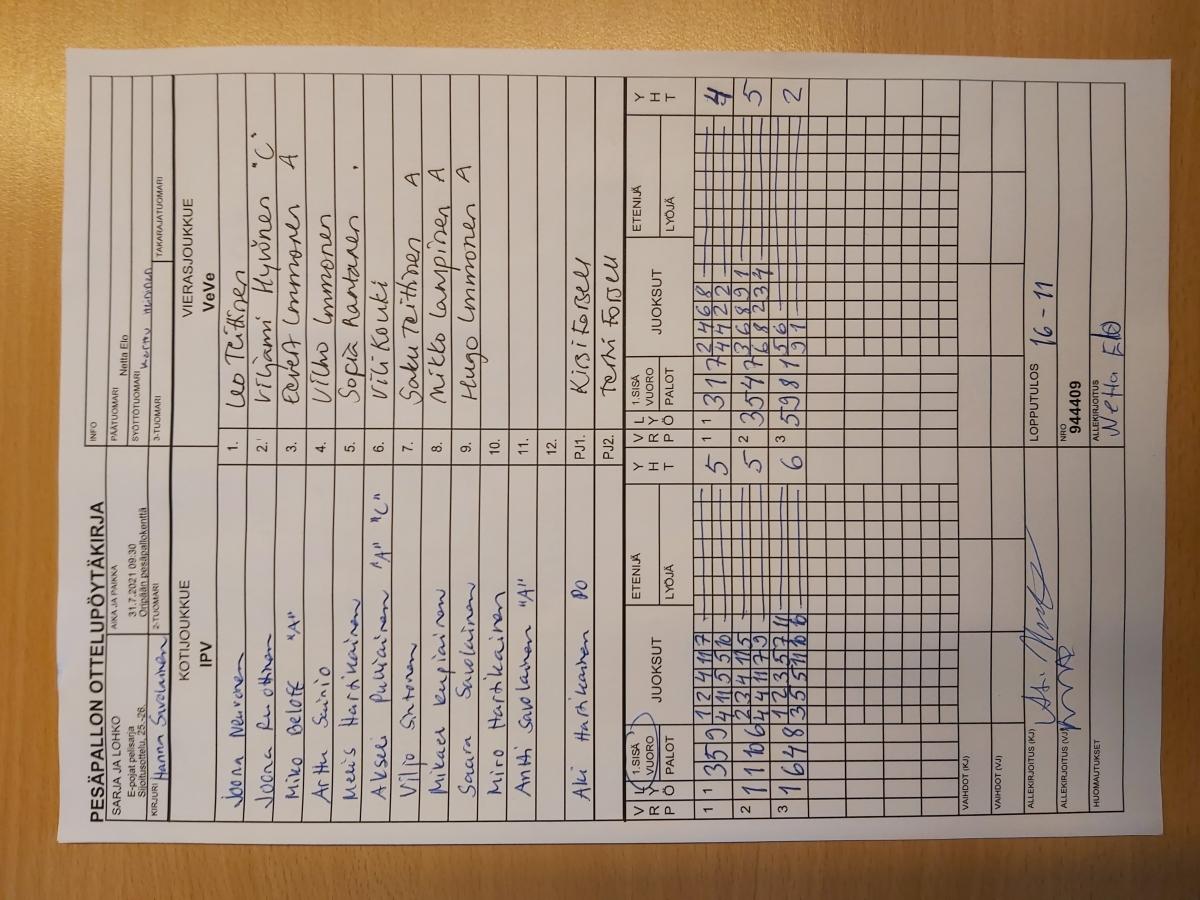 PESÄPALLON OTTELUPÖYTÄKIRJA
INFO
SARJA JA LOHKO
E-pojat pelisarja
Sijoitusottelu, 25.-26.
AIKA JA PAIKKA
31.7.2021 09:30
Oripään pesäpallokenttä
PÄÄTUOMARI Netta Elo
SYÖTTÖTUOMARI
KIRJURI Hanna Savolainen
2-TUOMARI
3-TUOMARI
TAKARAJATUOMARI
KOTIJOUKKUE
IPV
VIERASJOUKKUE
VeVe
Joona Nevonen 1. Leo Teittinen
Joona Ruottinen 2. Viljami Hyvönen "C"
Miko Beloff "A" 3. Eevert Immonen A
Arttu Suinio 4. Vilho Immonen
Meeis Hartikainen 5. Sopia Rantanen
Akseli Pulliainen "A" "C" 6. Vili Kouki
Viljo Sintonen 7. Saku Teittinen A
Mikael Kupiainen 8. Mikko Lampinen A
Saara Savolainen 9. Hugo Immonen A
Miro Hartikainen 10.
Antti Savolainen "A" 11.
12.
Aki Hartikainen PO PJ1. Kirsi Forsell
PJ2. Terhi Forsell
V R P L Y Ö 1.SISÄ VUORO PALOT JUOKSUT ETENIJÄ LYÖJÄ Y H T V R P L Y Ö 1.SISÄ VUORO PALOT JUOKSUT ETENIJÄ LYÖJÄ Y H T
1 1 3 5 9 1 2 4 11 7 5 1 1 3 1 7 2 4 6 8 4
4 11 5 5 10 7 4 4 2 2
2 1 11 10 6 2 3 4 11 5 5 2 3 5 4 7 3 6 8 9 1 5
4 4 11 7 9 6 8 2 3 4
3 1 6 4 8 1 2 3 5 7 11 6 3 5 9 8 1 5 6 2
3 5 5 11 10 6 9 1
VAIHDOT (KJ)
VAIHDOT (VJ)
ALLEKIRJOITUS (KJ)
LOPPUTULOS 16 - 11
ALLEKIRJOITUS (VJ)
NRO
944409
HUOMAUTUKSET
ALLEKIRJOITUS
Netta Elo